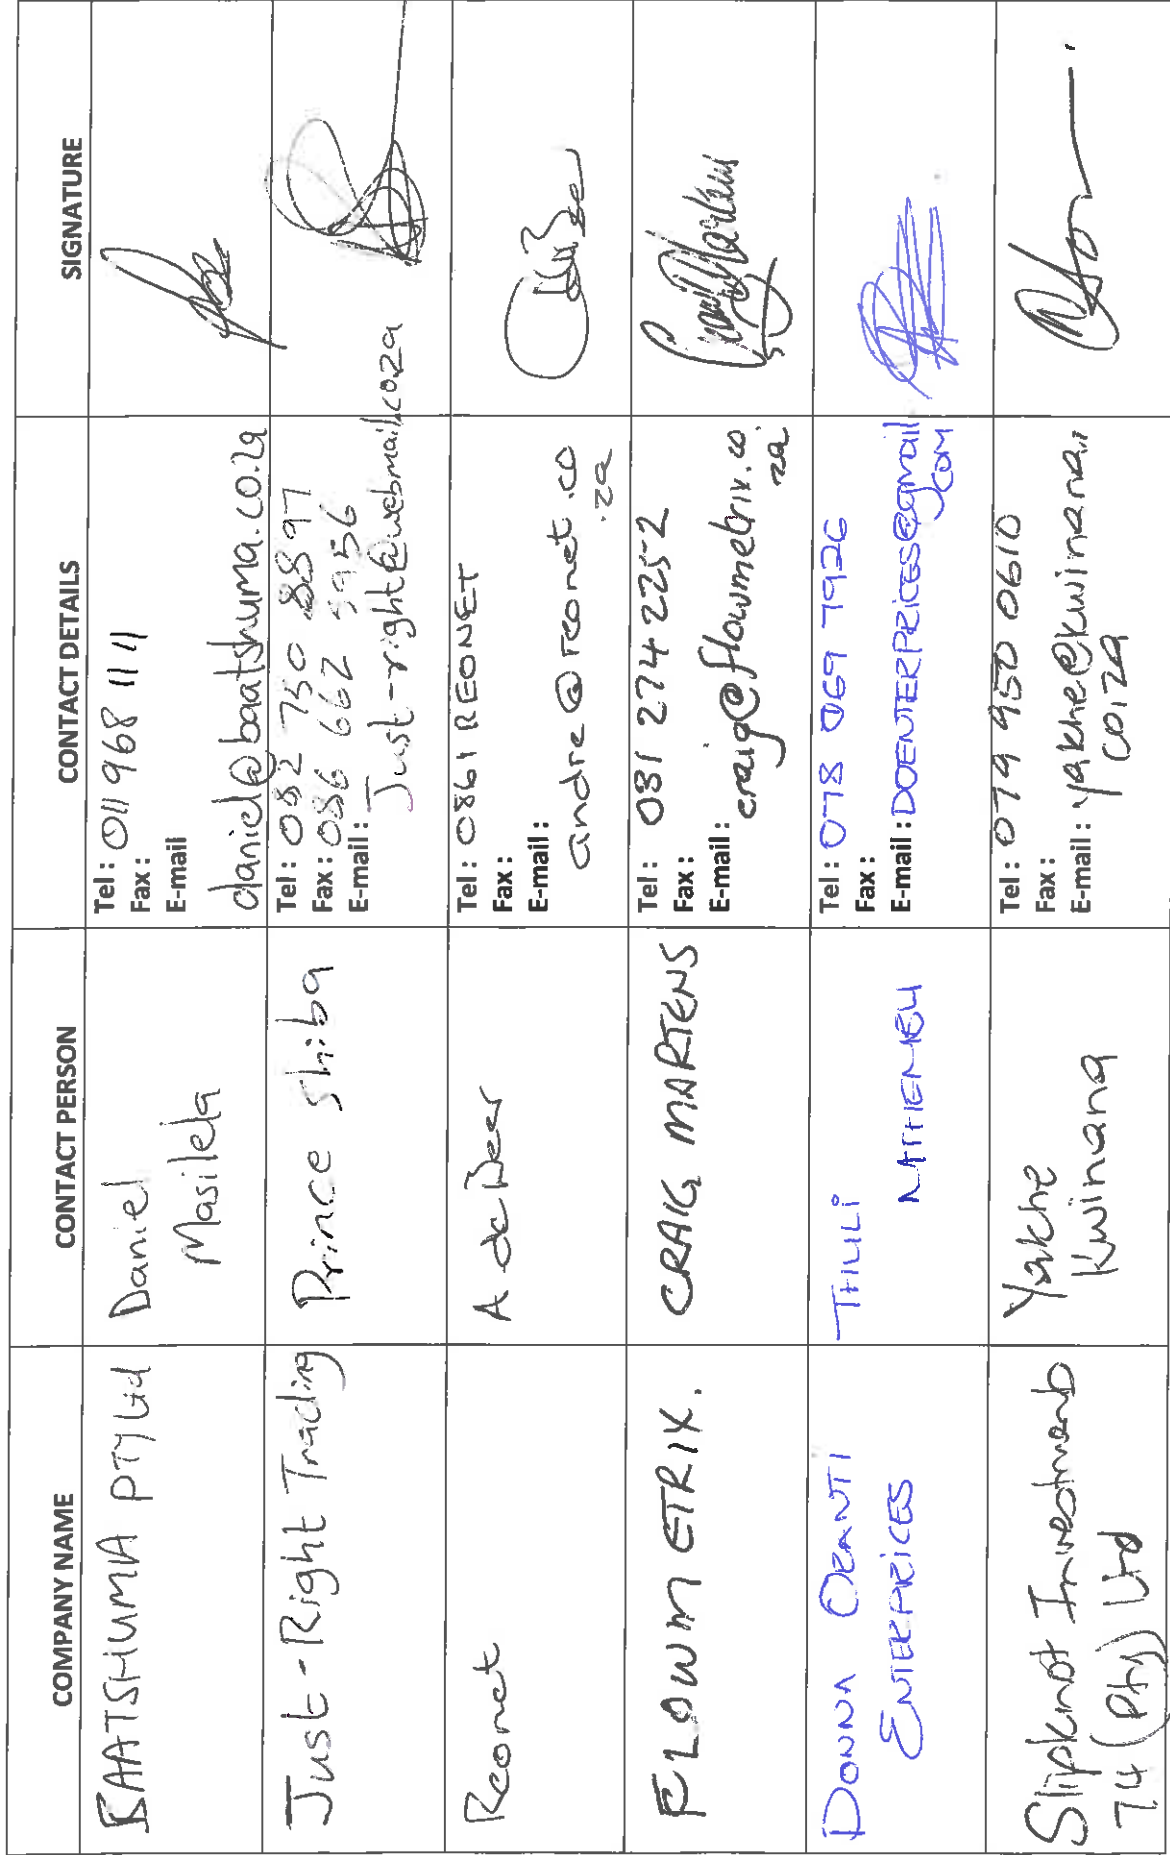 COMPANY NAME
CONTACT PERSON
CONTACT DETAILS
SIGNATURE
BAATSHUMA PTY Ltd
Daniel
Masilela
Tel : 011 968 1111
Fax :
E-mail
daniel@baatshuma.co.za
Just-Right Trading
Prince Shiba
Tel : 082 750 8897
Fax : 086 662 5956
E-mail :
Just-right@webmail.co.za
Reonet
A de Beer
Tel : 0861 REONET
Fax :
E-mail :
andre@reonet.co
.za
FLOWMETRIX.
CRAIG MARTENS
Tel : 031 274 2252
Fax :
E-mail :
craig@flowmetrix.co.
za
DONNA ORANTI
ENTERPRICES
THILILI
Tel : 078 069 7926
Fax :
E-mail : DOENTERPRICES@gmail
.com
Slipknot Investments
74 (Pty) Ltd
Yakhe
Kwinana
Tel : 079 950 0610
Fax :
E-mail : yakhe@kwinana..
co.za